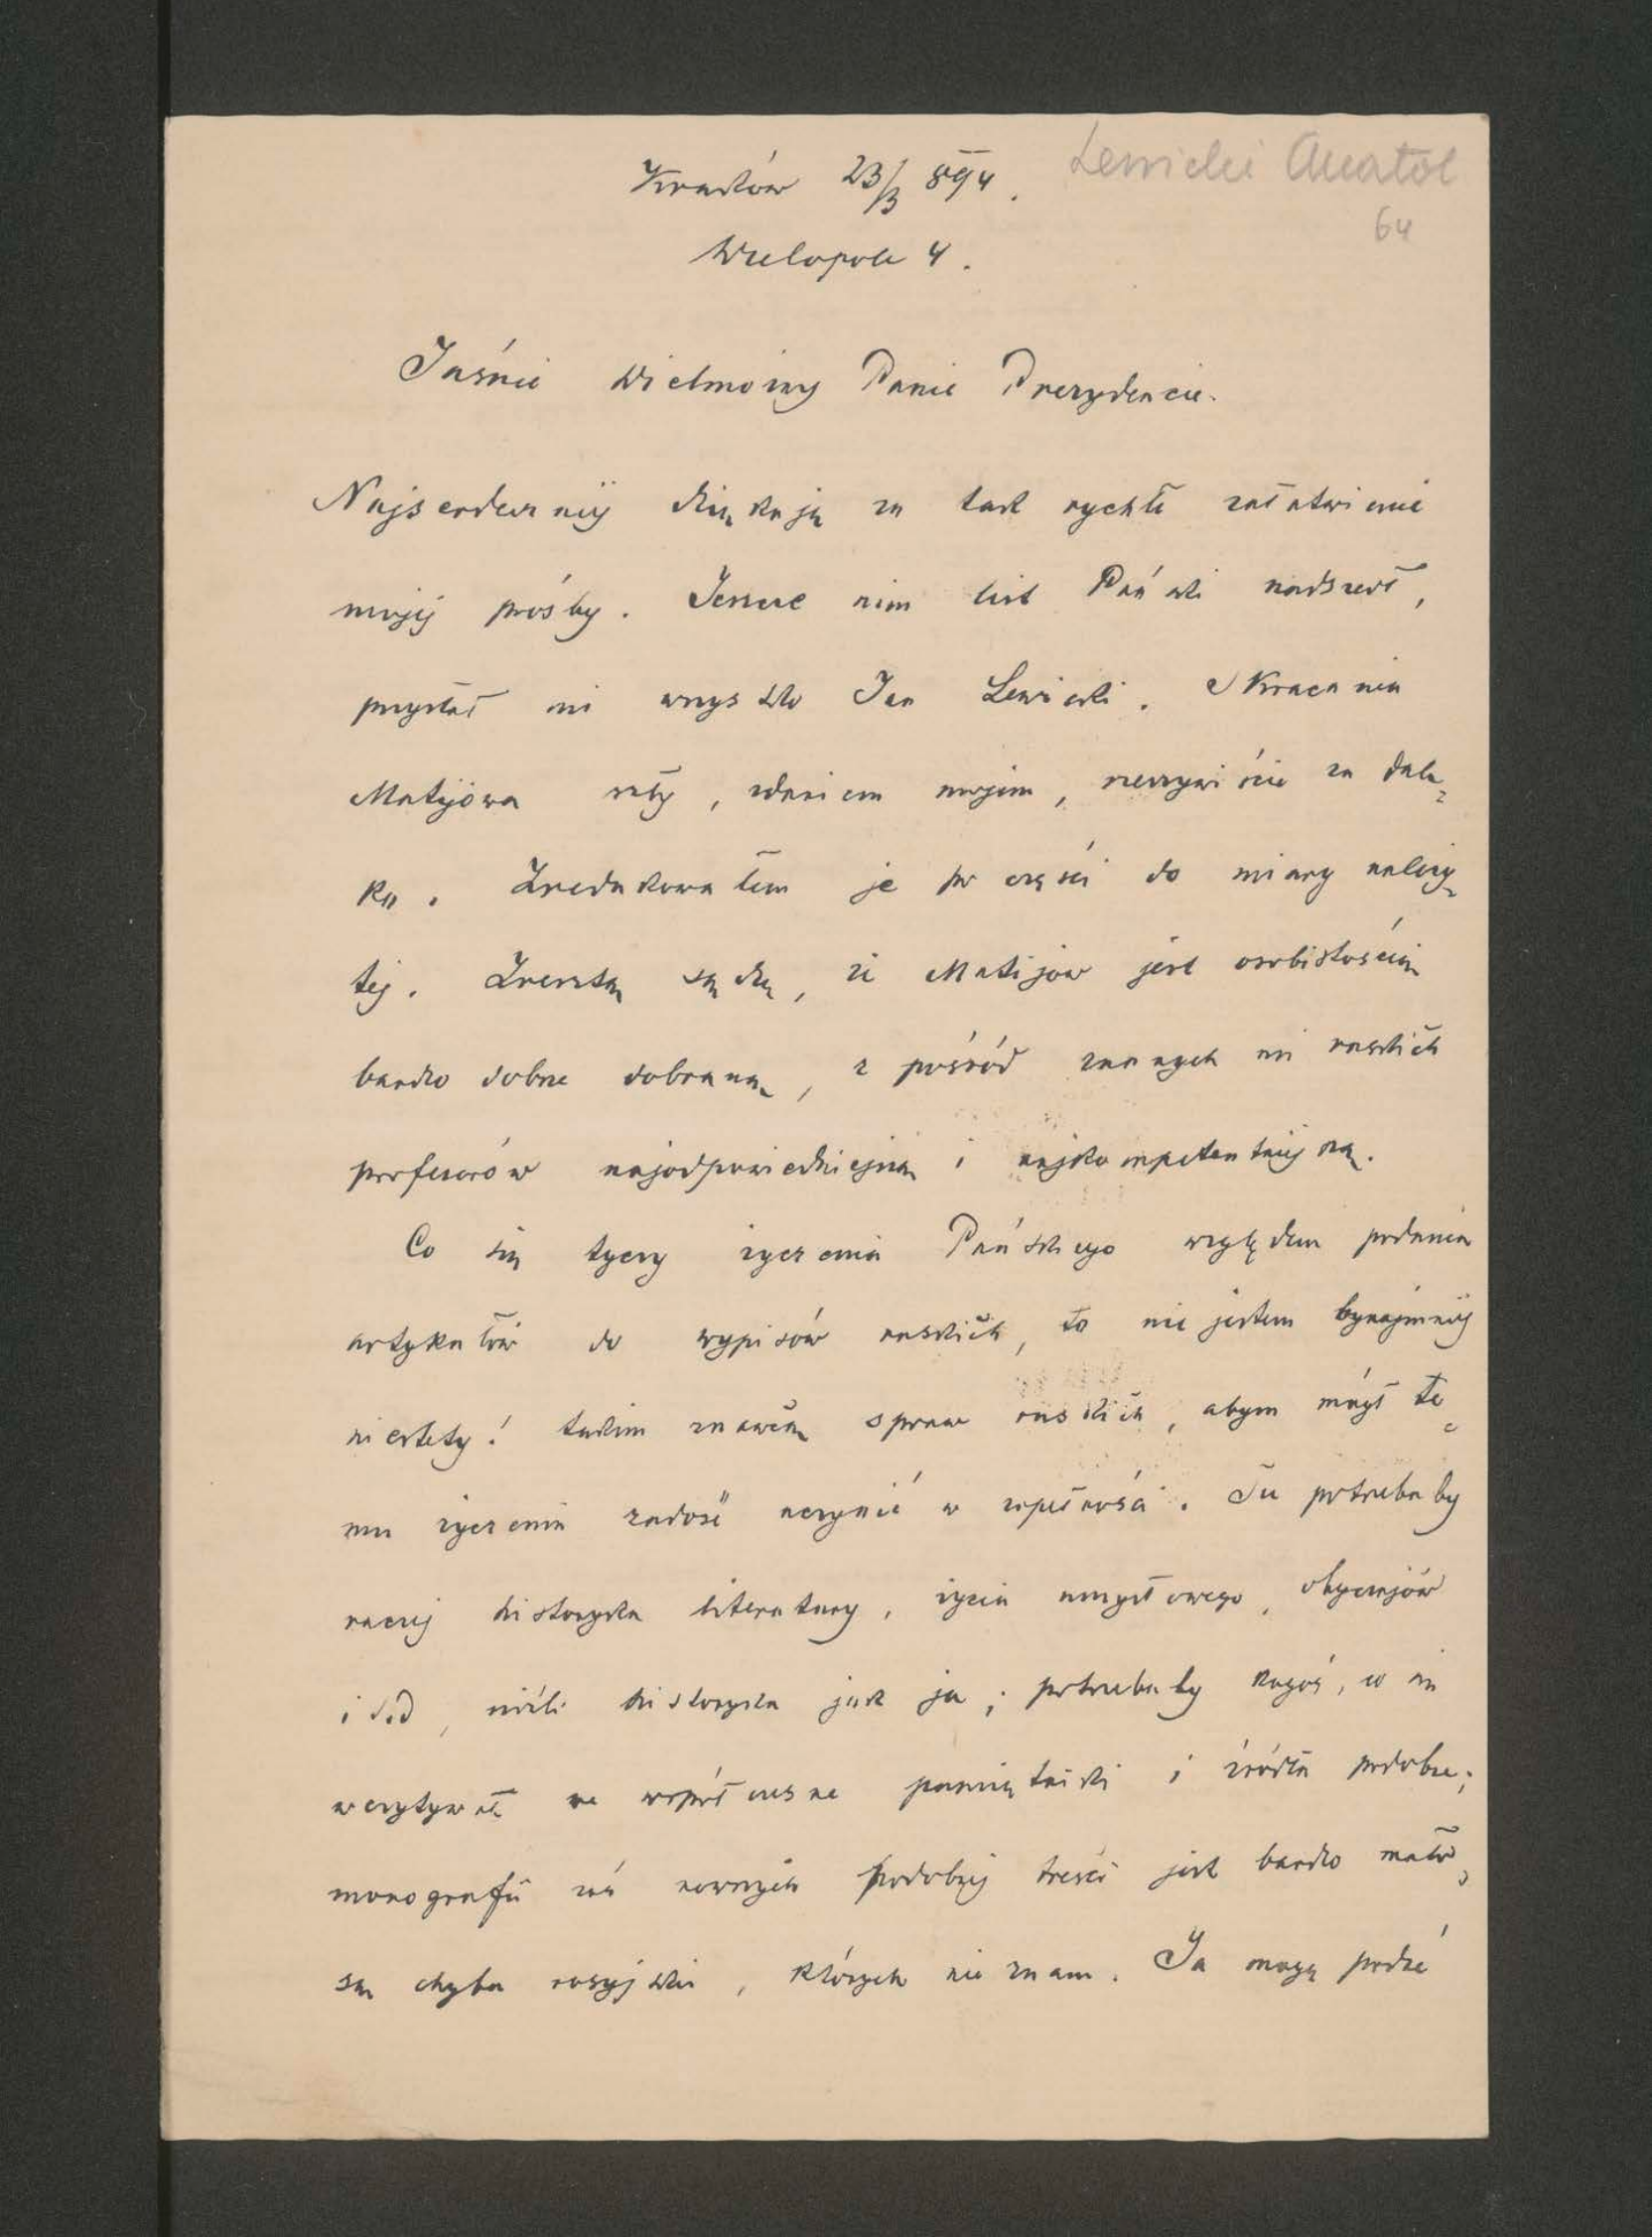 Kraków 23/3 894.
Lewicki Anatol
64
Wielopole 4.
Jaśnie Wielmożny Panie Prezydencie.
Najserdeczniej dziękuję za tak rychłe załatwienie
mojej prośby. Jeszcze nim list Pański nadszedł,
przysłał mi wszystko Jan Lewicki. Skracania
Matijowa szły, zdaniem mojem, rzeczywiście za dale-
ko. Zredukowałem je po części do miary należy-
tej. Zresztą sądzę, iż Matijów jest osobistością
bardzo dobrze dobraną, z pośród znanych mi ruskich
profesorów najodpowiedniejszą i najkompetentniejszą.
Co się tyczy życzenia Pańskiego względem podania
artykułów do wypisów ruskich, to nie jestem bynajmniej
niestety! takim znawcą spraw ruskich, abym mógł te-
mu życzeniu zadość uczynić w zupełności. Tu potrzebaby
raczej historyka literatury, życia umysłowego, obyczajów
i t.d, niźli historyka jak ja; potrzebaby kogoś, co się
wczytywał we współczesne pamiętniki i źródła podobne;
monografii zaś nowszych podobnej treści jest bardzo mało,
są chyba rosyjskie, których nie znam. Ja mogę podać